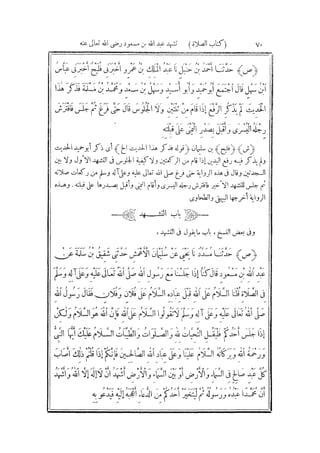 ٧٠ (كتاب الصلاة) تشهد عبد الله بن مسعود رضى الله تعالى عنه
(ص) حَدَّثَنَا أَحْمَدُ بْنُ حَنْبَلٍ نَا عَبْدُ الْمَلِكِ بْنُ عَمْرٍو أَخْبَرَنِى فُلَيْحٌ أَخْبَرَنِى عَبَّاسُ
ابْنُ سَهْلٍ قَالَ اجْتَمَعَ أَبُو حُمَيْدٍ وَأَبُو أُسَيْدٍ وَسَهْلُ بْنُ سَعْدٍ وَمُحَمَّدُ بْنُ مَسْلَمَةَ فَذَكَرَ هَذَا
الْحَدِيثَ لَمْ يَذْكُرِ الرَّفْعَ إِذَا قَامَ مِنْ ثِنْتَيْنِ وَلَا الْجُلُوسَ قَالَ حَتَّى فَرَغَ ثُمَّ جَلَسَ فَافْتَرَشَ
رِجْلَهُ الْيُسْرَى وَأَقْبَلَ بِصَدْرِ الْيُمْنَى عَلَى قِبْلَتِهِ
(ش) (فليح) بن سليمان (قوله فذكر هذا الحديث الخ) أى ذكر أبو حميد الحديث
ولم يذكر فيه رفع اليدين إذا قام من الركعتين ولا كيفية الجلوس فى التشهد الأول ولا بين
السجدتين وقال فى هذه الرواية حتى فرغ صلى الله تعالى عليه وعلى آله وسلم من ركعات صلاته
ثم جلس للتشهد الأخير فافترش رجله اليسرى وأقام اليمنى وأقبل بصدرها على قبلته. وهذه
الرواية أخرجها البيهقى والطحاوى
باب التشـــهد
وفى بعض النسخ، باب ما يقول فى التشهد،
(ص) حَدَّثَنَا مُسَدَّدٌ نَا يَحْيَى عَنْ سُلَيْمَانَ الْأَعْمَشِ حَدَّثَنِى شَقِيقُ بْنُ سَلَمَةَ عَنْ
عَبْدِ اللهِ بْنِ مَسْعُودٍ قَالَ كُنَّا إِذَا جَلَسْنَا مَعَ رَسُولِ اللهِ صَلَّى اللهُ تَعَالَى عَلَيْهِ وَعَلَى آلِهِ وَسَلَّمَ
فِى الصَّلَاةِ قُلْنَا السَّلَامُ عَلَى اللهِ قَبْلَ عِبَادِهِ السَّلَامُ عَلَى فُلَانٍ وَفُلَانٍ فَقَالَ رَسُولُ اللهِ
صَلَّى اللهُ تَعَالَى عَلَيْهِ وَعَلَى آلِهِ وَسَلَّمَ لَا تَقُولُوا السَّلَامُ عَلَى اللهِ فَإِنَّ اللهَ هُوَ السَّلَامُ وَلَكِنْ
إِذَا جَلَسَ أَحَدُكُمْ فَلْيَقُلِ التَّحِيَّاتُ لِلهِ وَالصَّلَوَاتُ وَالطَّيِّبَاتُ السَّلَامُ عَلَيْكَ أَيُّهَا النَّبِىُّ
وَرَحْمَةُ اللهِ وَبَرَكَاتُهُ السَّلَامُ عَلَيْنَا وَعَلَى عِبَادِ اللهِ الصَّالِحِينَ فَإِنَّكُمْ إِذَا قُلْتُمْ ذَلِكَ أَصَابَ
كُلَّ عَبْدٍ صَالِحٍ فِى السَّمَاءِ وَالْأَرْضِ أَوْ بَيْنَ السَّمَاءِ وَالْأَرْضِ أَشْهَدُ أَنْ لَا إِلَهَ إِلَّا اللهُ وَأَشْهَدُ
أَنَّ مُحَمَّدًا عَبْدُهُ وَرَسُولُهُ ثُمَّ لْيَتَخَيَّرْ أَحَدُكُمْ مِنَ الدُّعَاءِ أَعْجَبَهُ إِلَيْهِ فَيَدْعُوَ بِهِ